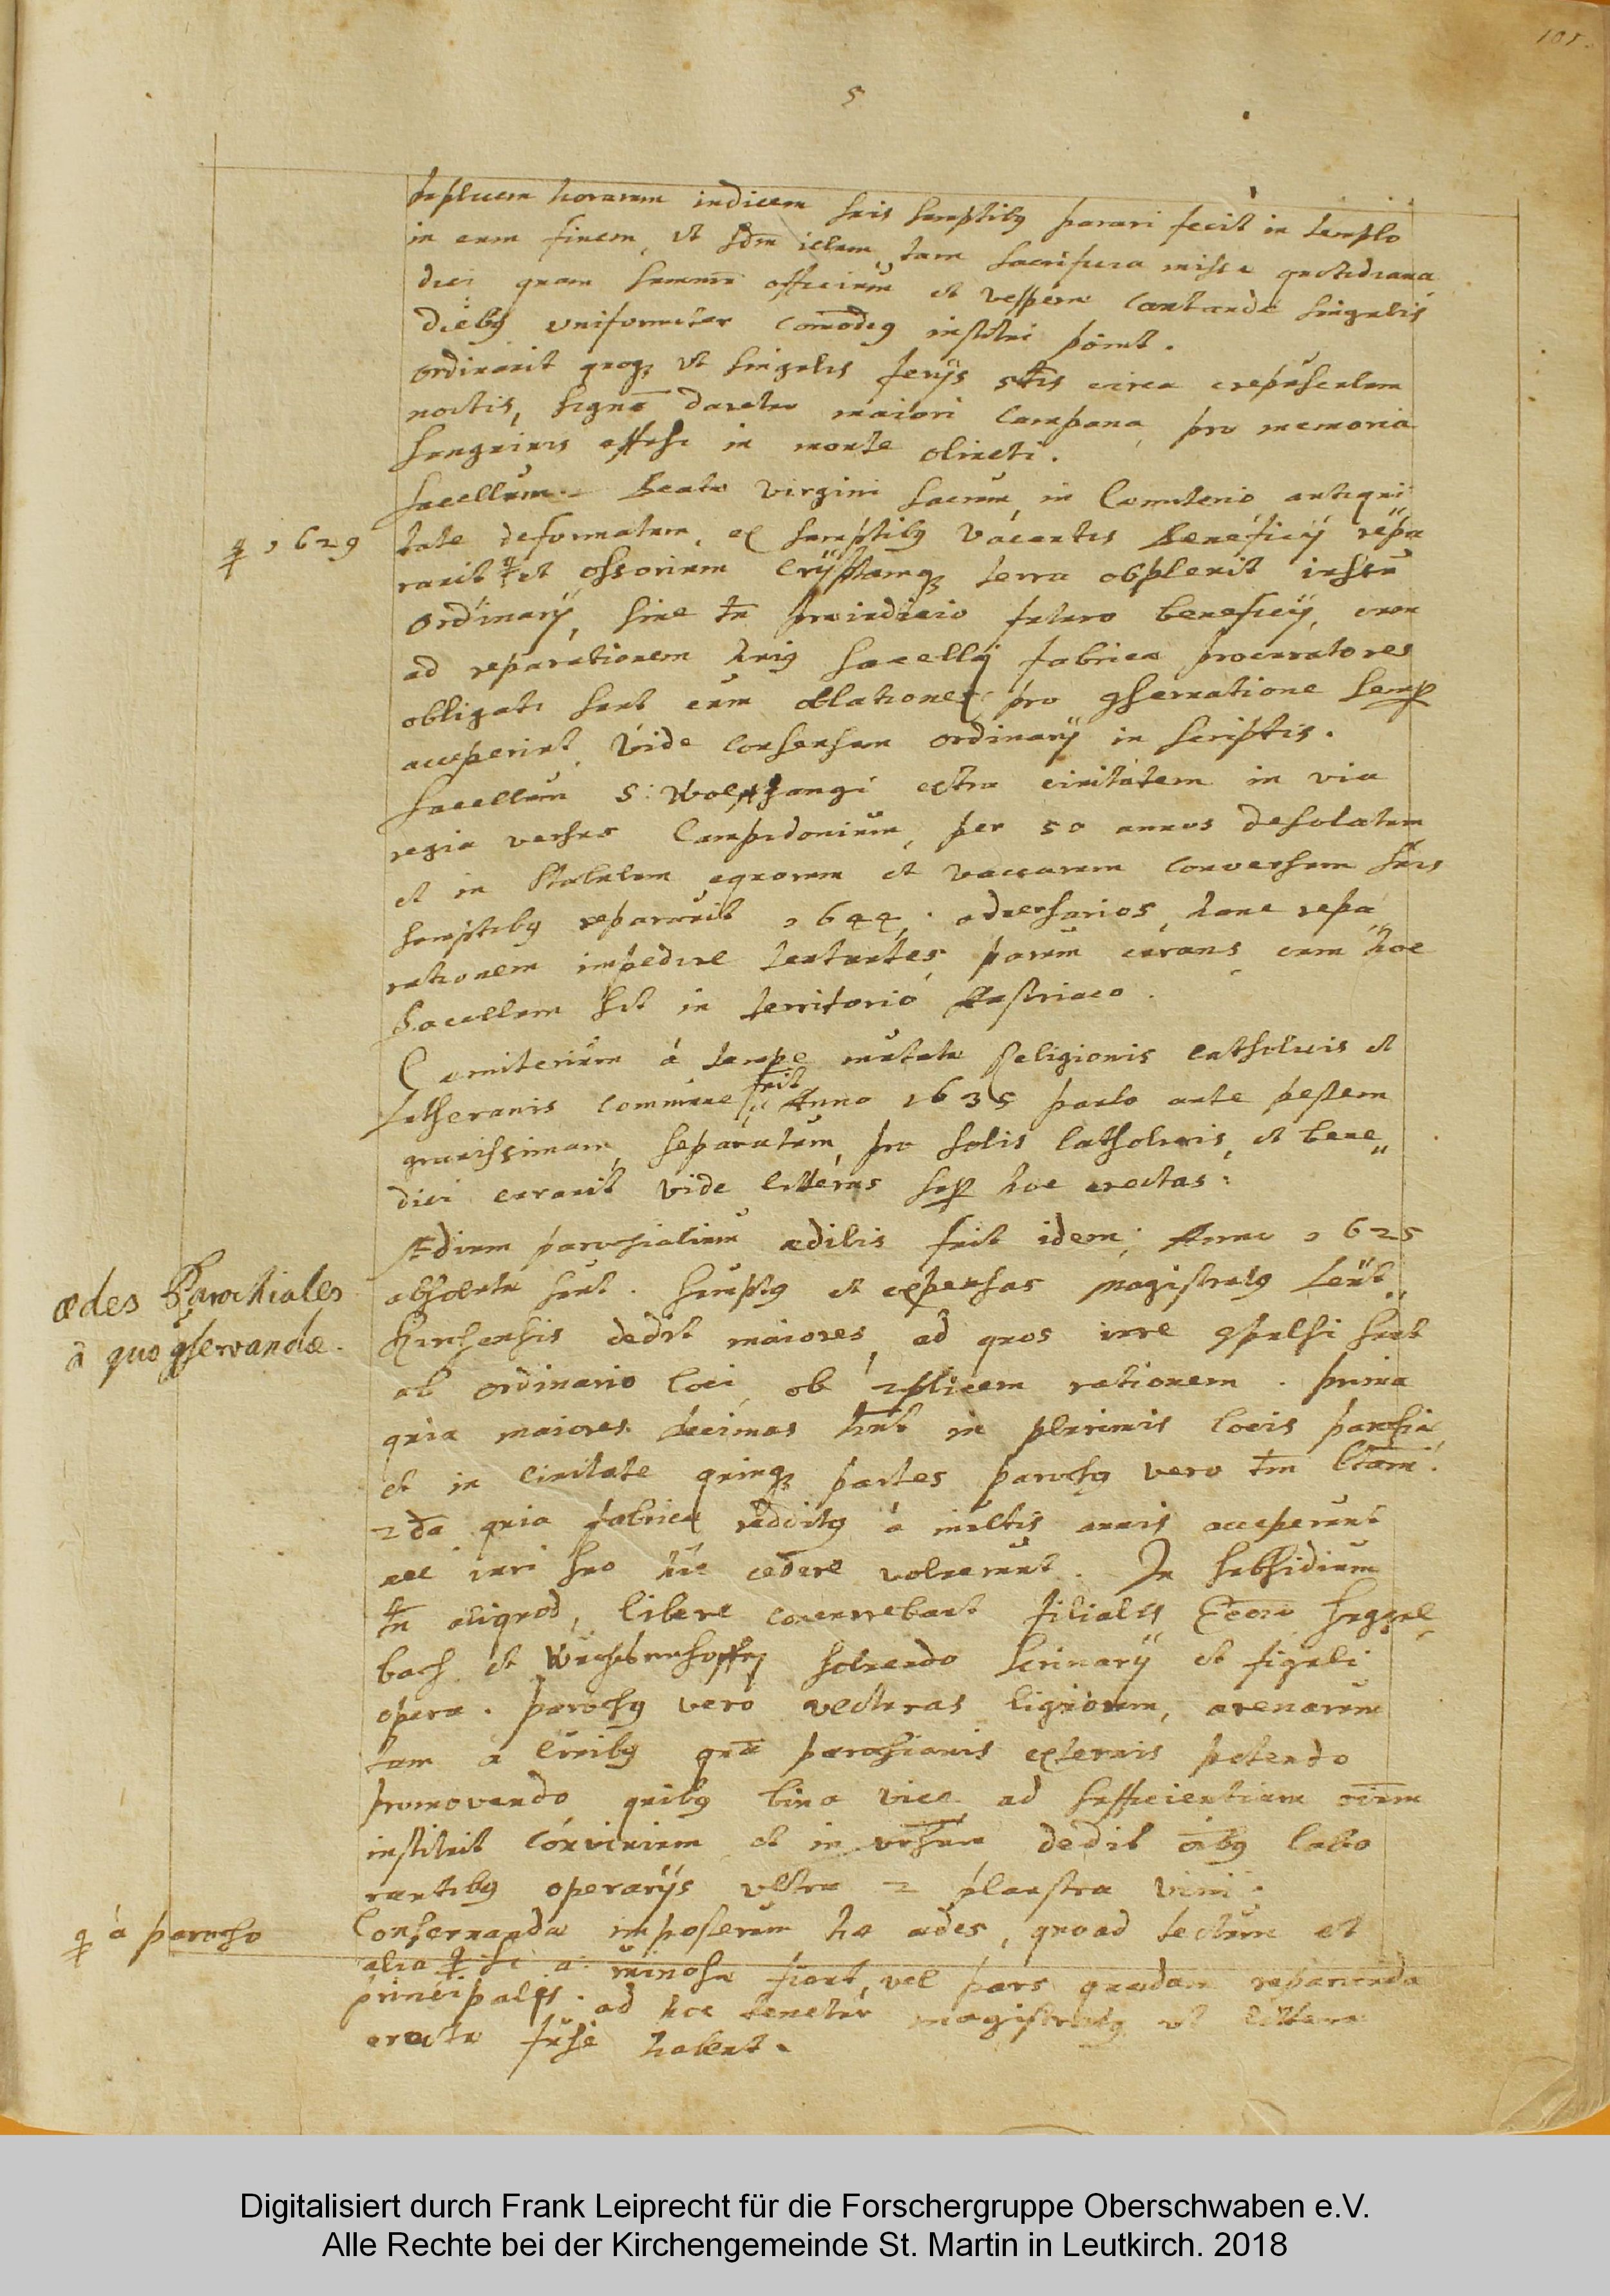 105.
5
triplicem horarum indicem suis sumptibus parari fecit in templo
in eum finem, ut secundum illum, tam sacrificia missae quotidiana
dici quam summum officium et vesperae cantandae singulis
diebus uniformiter commodius institui possint.
ordinavit quoque ut singulis ferijs 5tis circa crepusculum
noctis, signum daretur maiori campana, pro memoria
sanguinis effusi in monte oliveti.
Sacellum Beatae Virgini sacrum, in Coemiterio antiqui
# 1629
tate deformatum, ex sumptibus vacantis beneficij repa
ravit # et ossorium cryptamque terra obplevit iussu
ordinarij, sine tamen praeiudicio futuro beneficij, cum
ad reparationem huius sacelli fabricae procuratores
obligati sunt cum oblationes pro conservatione semper
acceperint. Vide consensum ordinarij in scriptis.
Sacellum S: Wolffgangi extra civitatem in via
regia versus Campidonium, per 50 annos desolatum
et in stabulum equorum et vaccarum conversum suis
sumptibus reparavit 1644. adversarios, hanc repa
rationem impedire tentantes, parum curans, cum hoc
Sacellum sit in territorio Austriaco.
Coemiterium à tempore mutatae Religionis catholicis et
fuit
Lutheranis commune, Anno 1635 paulo ante pestem
gravissimam, separatum, pro solis catholicis, et bene„
dici curavit vide litteras super hoc erectas:
Ædium parochialium ædilis fuit idem; Anno 1625
ædes Parochiales
absolutae sunt. sumptus et expensas Magistratus Leut„
à quo conservandæ.
kirchensis dedit maiores, ad quos iure compulsi sunt
ab ordinario loci, ob 2plicem rationem. prima
quia maiores decimas habent in plurimis locis parochiae
et in civitate quinque partes parochus vero tantum 6tam.
2da quia fabricae redditus à multis annis acceperunt
nec iuri suo hic cedere voluerunt. In subsidium
tamen aliquod, libere concurrebant filiales
bach et solvendo scrinarij et figuli
opera. parochus vero vecturas lignorum, arenarum
tam à civibus quam parochianis externis petendo
promovendo, quibus bina vice ad sufficientiam omnem
instituit convivium et in dedit omnibus labo
rantibus operarijs ultra 2 plaustra vini.
# à parocho
Conservandae imposterum hae aedes, quoad tectum et
alia # si a. ruinosa fiant, vel pars quaedam reparanda
principalis. ad hoc tenetur magistratus ut litterae
erectae fuse habent.
Digitalisiert durch Frank Leiprecht für die Forschergruppe Oberschwaben e.V.
Alle Rechte bei der Kirchengemeinde St. Martin in Leutkirch. 2018